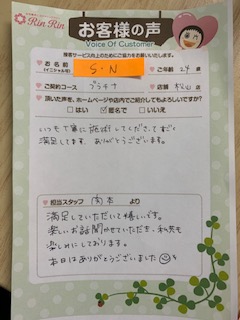 Rin Rin
お客様の声
Voice Of Customer
接客サービス向上のためにご協力をお願いいたします。
お名前
(イニシャル可)
S・N
ご年齢 24 歳
ご契約コース
プラチナ
店舗 松山 店
頂いた声を、ホームページや店内でご紹介してもよろしいですか?
はい
匿名で
いいえ
いつも丁寧に施術してくださって
満足してます。ありがとうございます。
担当スタッフ
より
満足していただいて嬉しいです。
楽しいお話聞かせていただき、私共も
楽しみにしております。
本日はありがとうございました